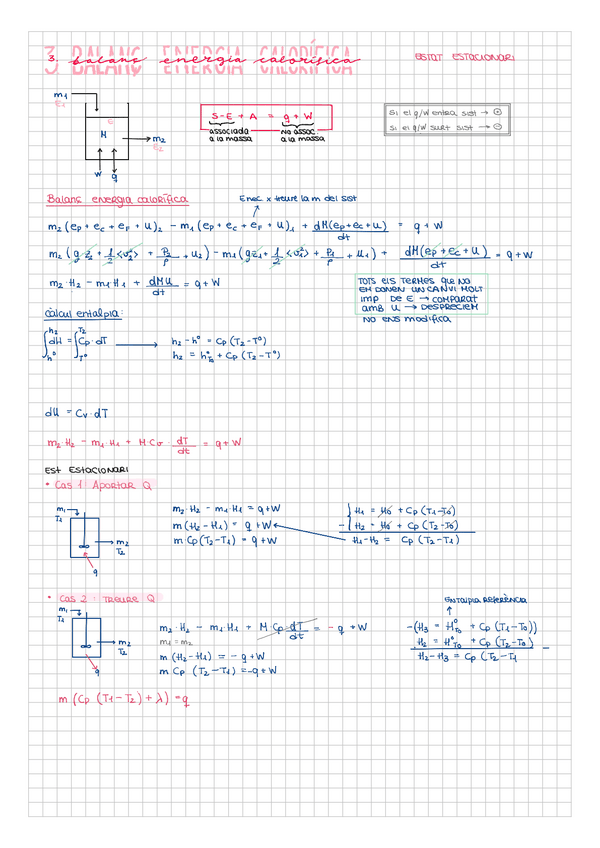 3. BALANÇ ENERGIA CALORÍFICA
balanç energia calorífica
ESTAT ESTACIONARI
m₁
E₁
E
M
m₂
E₂
W q
S-E + A = q + W
associada a la massa
No assoc. a la massa
Si el q/W entra sist → ⊕
Si el q/W surt sist → ⊖
Balanç energia calorífica
Enec x treure la m del sist
m₂ (ep + ec + eF + U)₂ - m₁ (ep + ec + eF + U)₁ + dM(ep+ec+U)/dt = q + W
m₂ (g z₂ + 1/2 <v₂²> + P₂/ρ + U₂) - m₁ (g z₁ + 1/2 <v₁²> + P₁/ρ + U₁) + dM(ep + ec + U)/dt = q + W
m₂·H₂ - m₁·H₁ + dMU/dt = q + W
TOTS ELS TERMES QUE NO
EM DONEN UN CANVI MOLT
IMP DE E → COMPARAT
AMB U → DESPRECIEM
NO ENS MODIFICA
Càlcul entalpia:
∫h° h₂ dH = ∫T° T₂ Cp dT → h₂ - h° = Cp (T₂ - T°)
h₂ = h° + Cp (T₂ - T°)
dU = Cv · dT
m₂·H₂ - m₁·H₁ + M Cv · dT/dt = q + W
EST ESTACIONARI
• Cas 1 Aportar Q
m₁
T₁
m₂
T₂
q
m₂·H₂ - m₁·H₁ = q + W
m (H₂ - H₁) = q + W
m·Cp (T₂ - T₁) = q + W
H₁ = H₀ + Cp (T₁ - T₀)
- H₂ = H₀ + Cp (T₂ - T₀)
H₁ - H₂ = Cp (T₂ - T₁)
• Cas 2: TREURE Q
m₁
T₁
m₂
T₂
q
m₂·H₂ - m₁·H₁ + M·Cp·dT/dt = - q + W
m₁ = m₂
m (H₂ - H₁) = - q + W
m Cp (T₂ - T₁) = - q + W
ENTALPIA REFERÈNCIA
-(H₃ = H°T₀ + Cp (T₁ - T₀))
H₂ = H°T₀ + Cp (T₂ - T₀)
H₂ - H₃ = Cp (T₂ - T₁
m (Cp (T₁ - T₂) + λ) = q